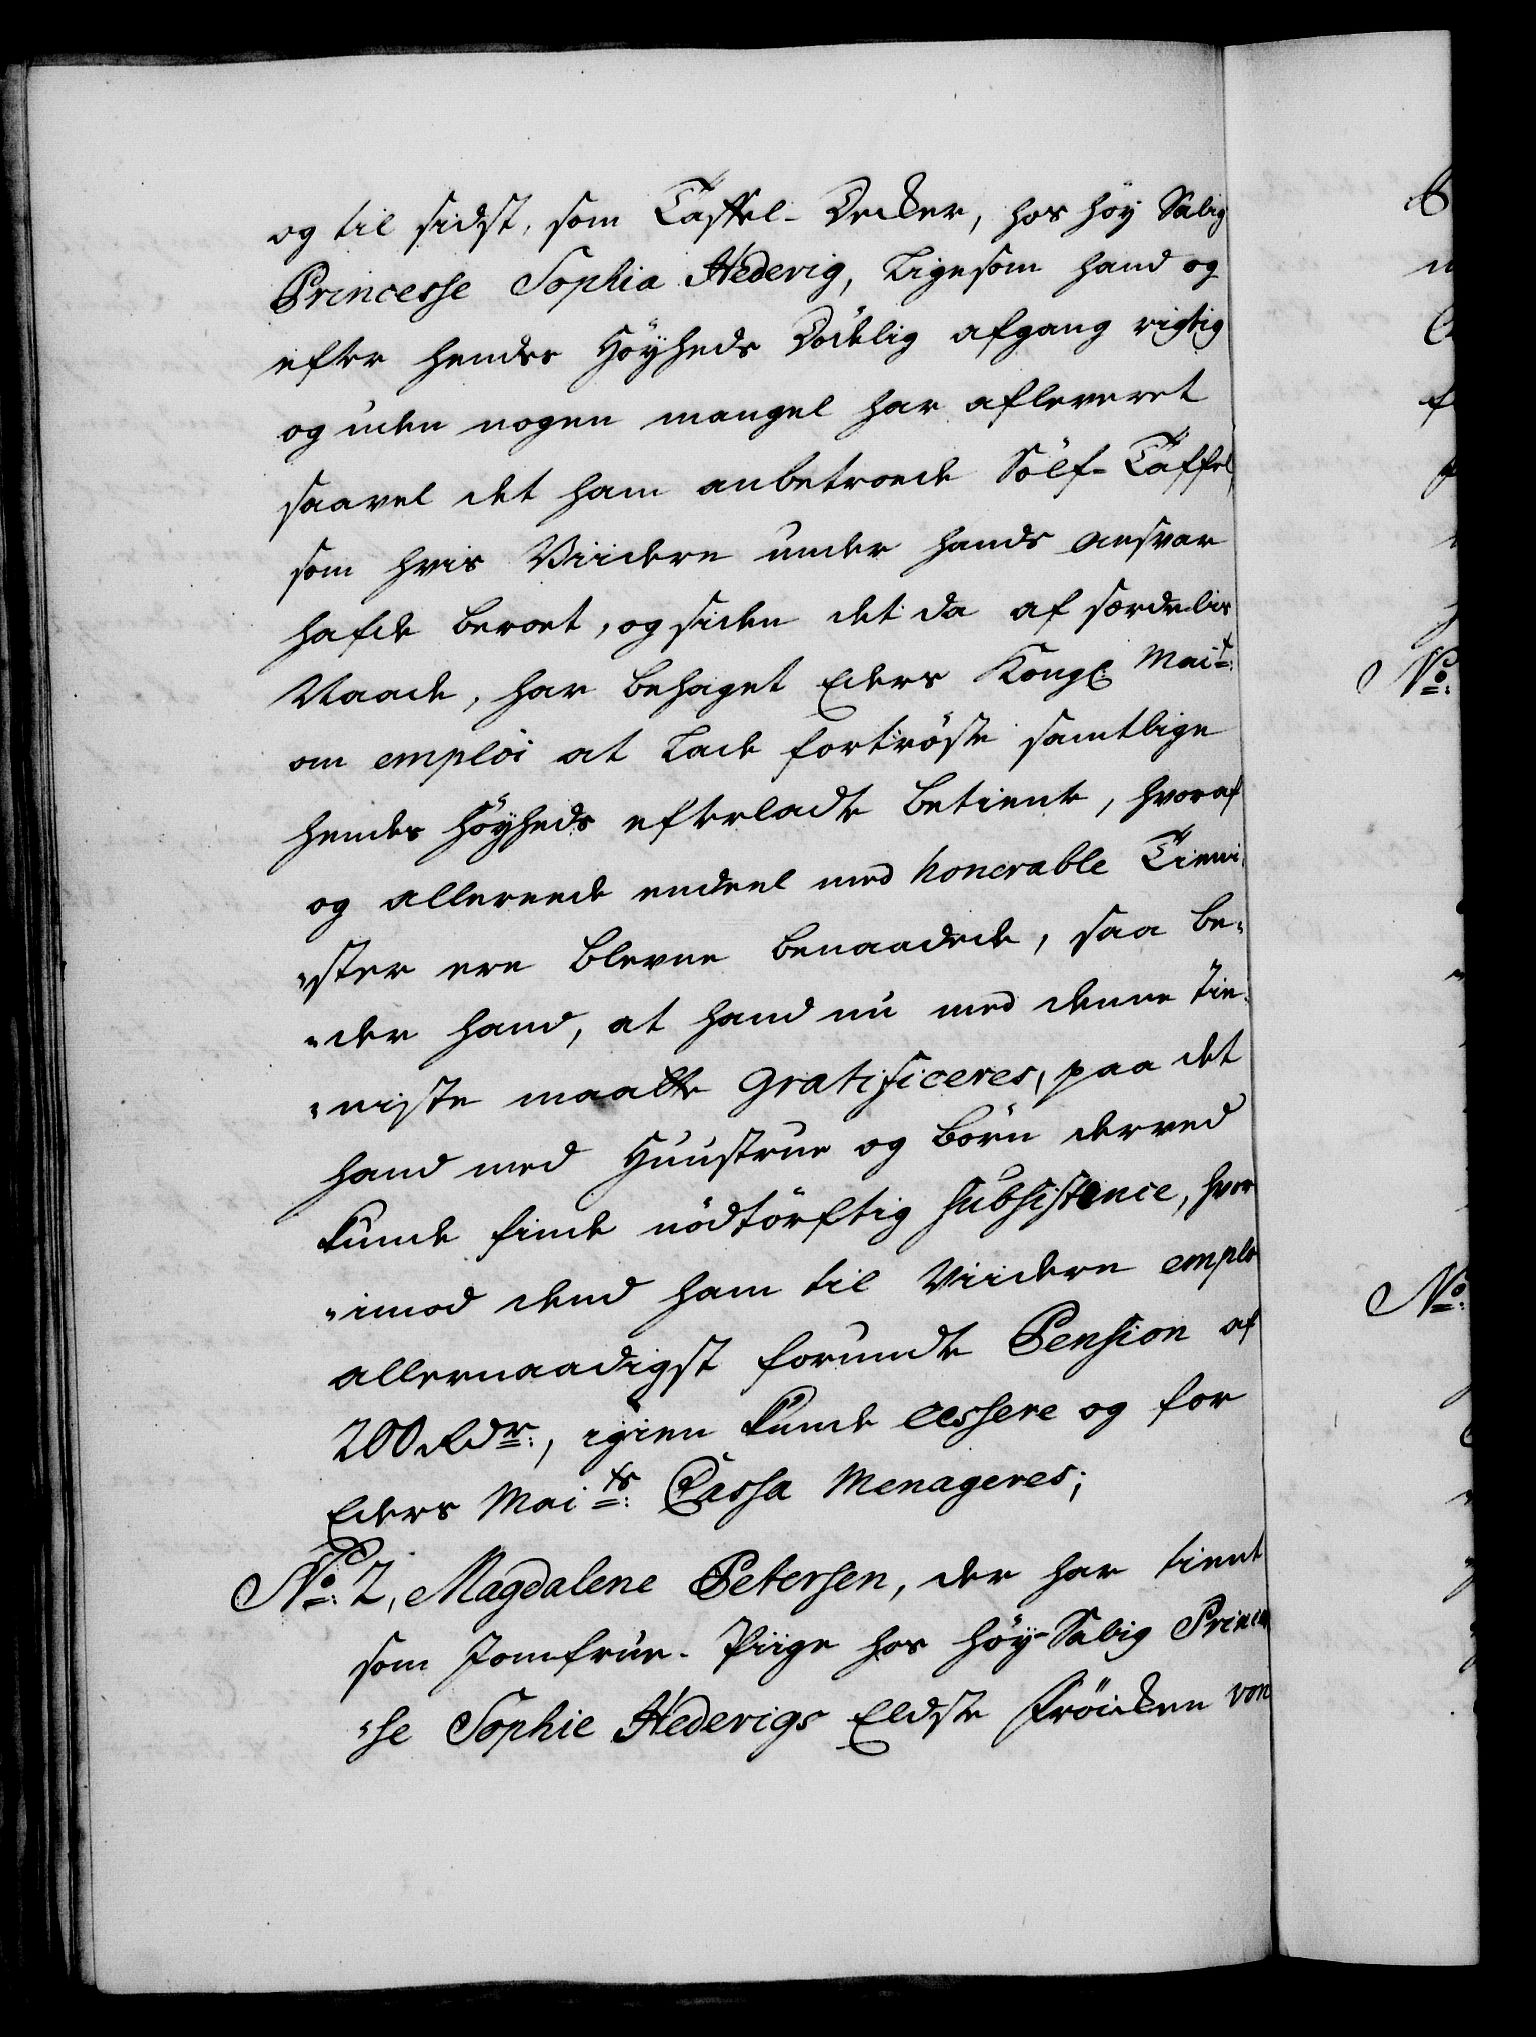 og til sidst, som Taffel-Decker, hos høy Salig
Princesse Sophia Hedevig, Ligesom hand og
efter hendes Höyheds Dödelig afgang rigtig
og uden nogen mangel har afleveret
saavel det ham anbetroede Sölf-Taffel,
som hvis Viidere under hands ansvar
hafde beroet, og siden det da af særdelis
Naade, har behaget Eders Kongl: Mait:
om emploi at Lade fortröste samtlige
hendes Höyheds efterladte Betiente, hvoraf
og allereede endeel med honorable Tieni-
„ster ere blevne benaadede, saa be-
„der hand, at hand nu med denne Tie-
„niste maatte gratificeres, paa det
hand med Huustrue og Börn derved
kunde finde nödtörftig subsistence, hvor
„imod dend ham til Viidere emplo
allernaadigst forundte Pension af
200 Rdr:, igien kunde cessere og for
Eders Maits: Cassa menageres;
No: 2, Magdalene Petersen, der har tient
som Jomfrue-Piige hos höy-Salig Prince
„sse Sophie Hedevigs Eldste Fröicken von
No:
No: